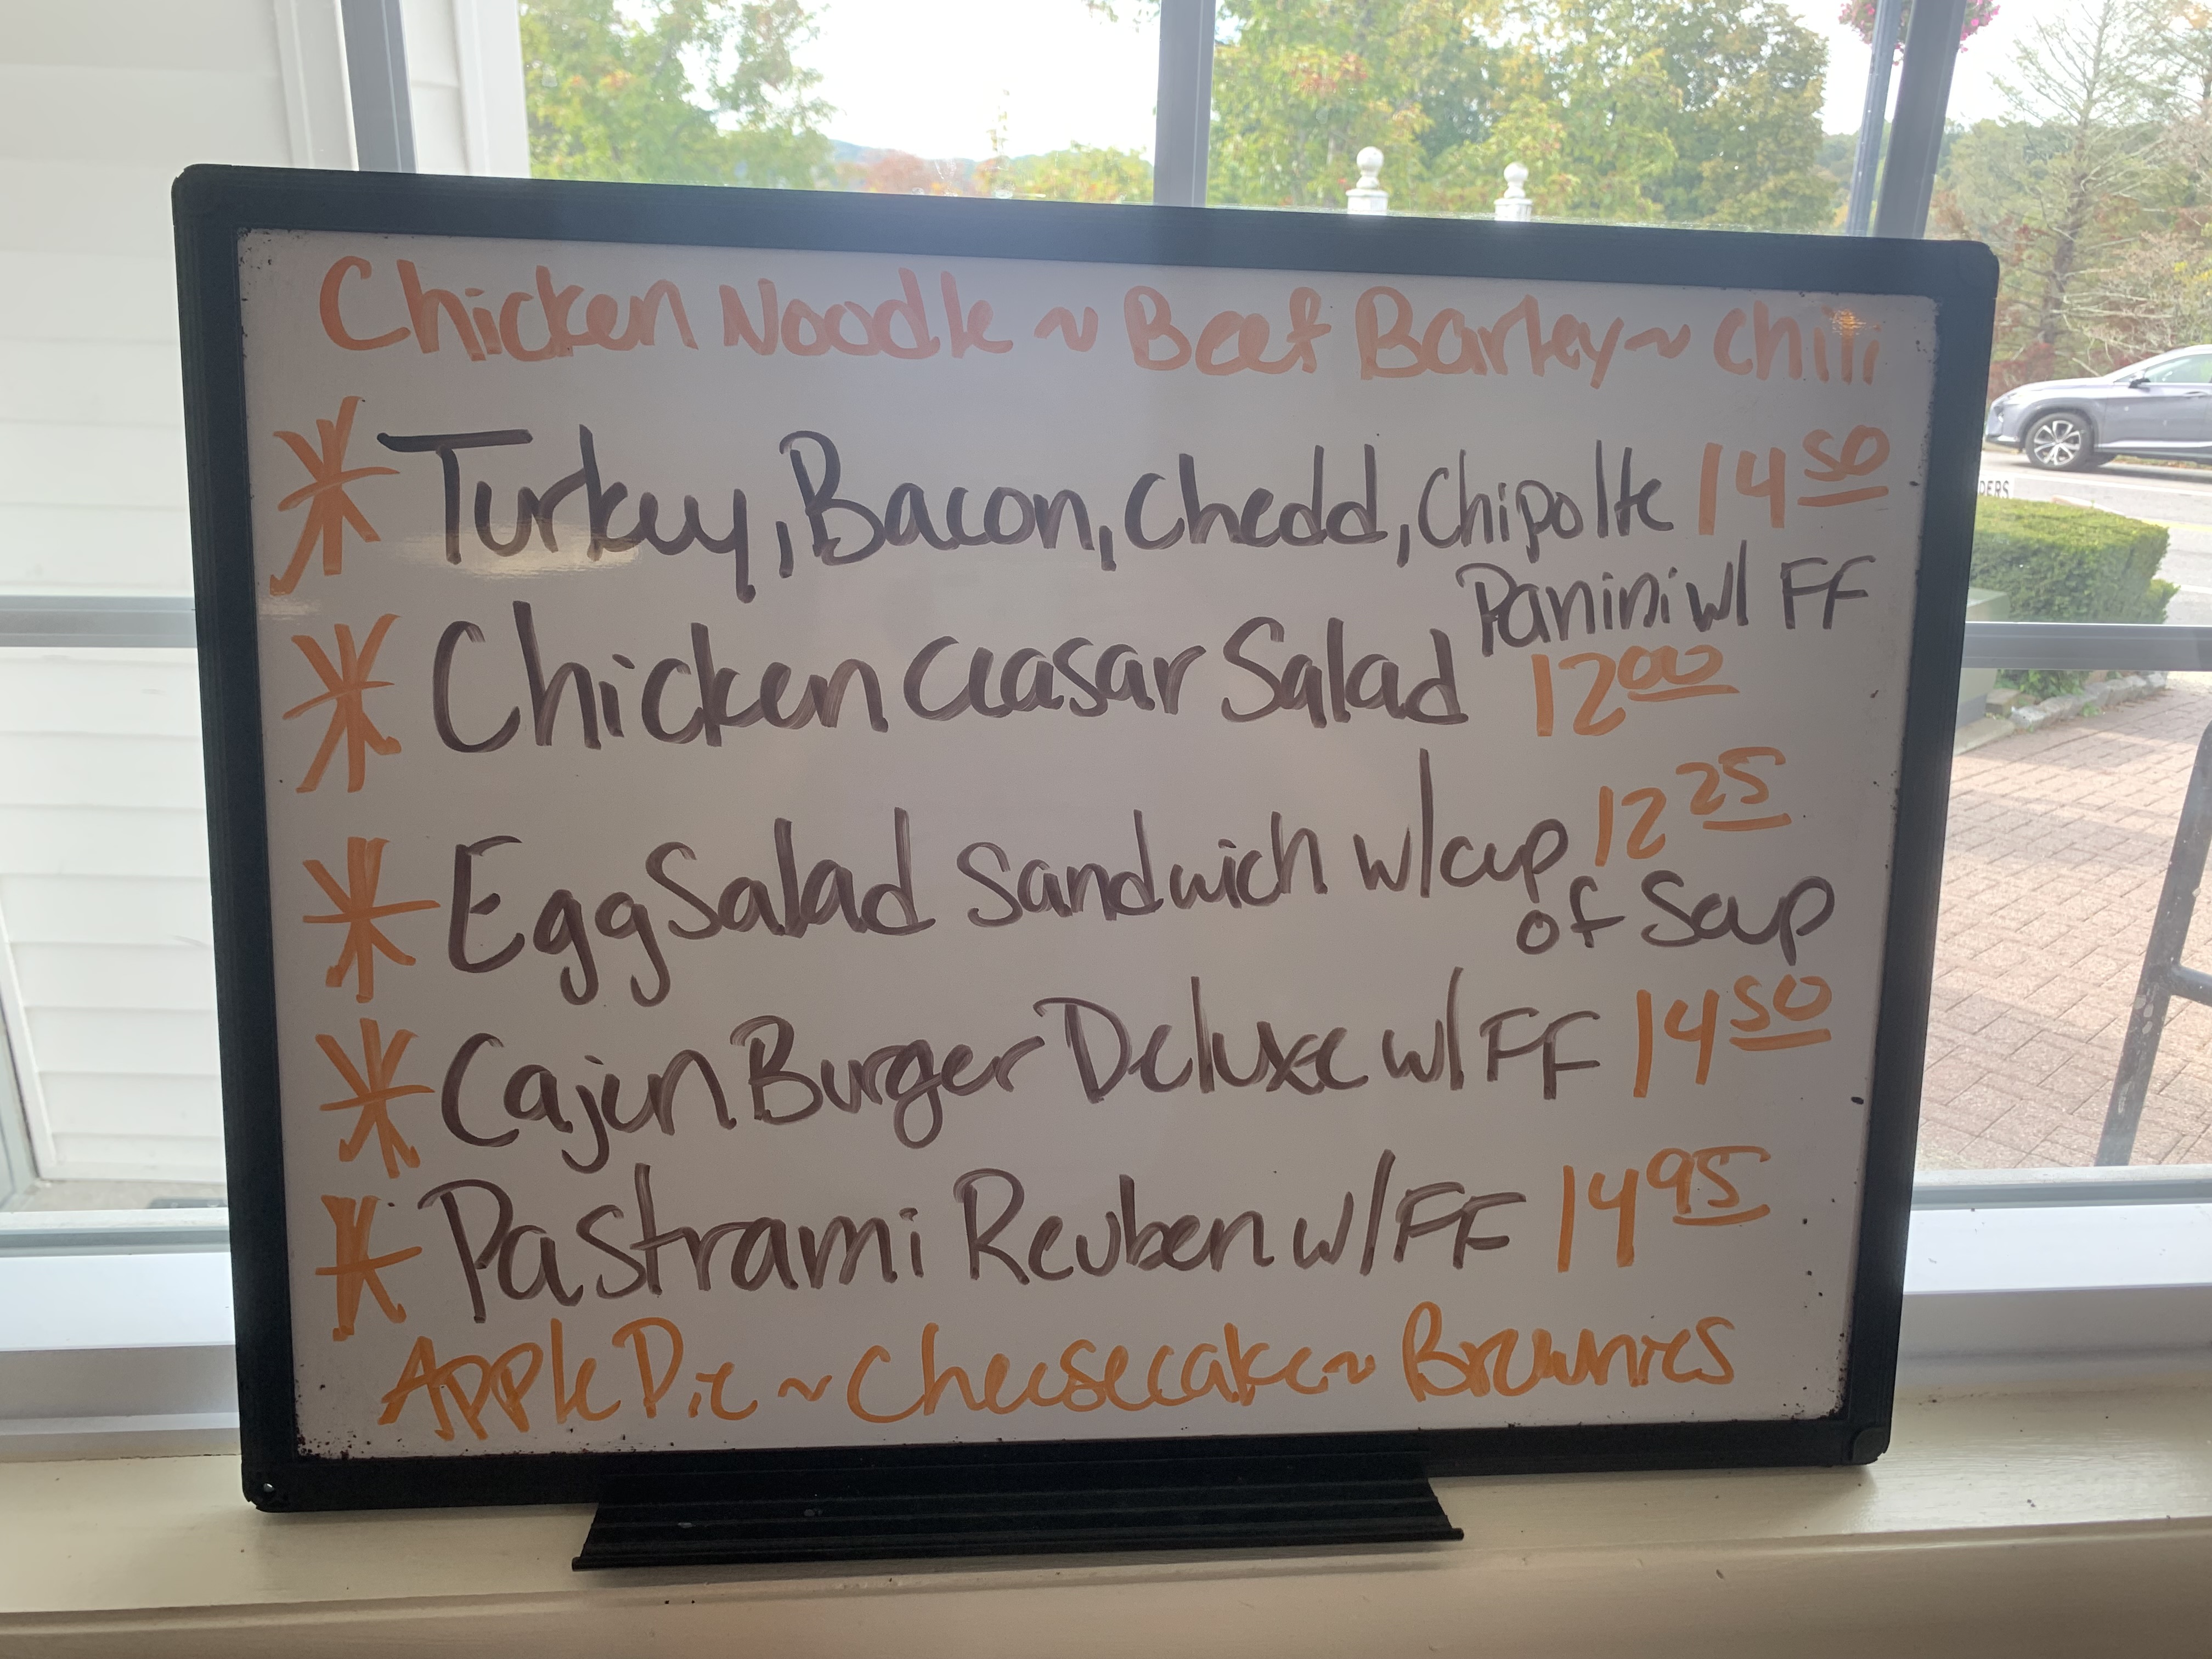 Chicken Noodle ~ Beef Barley ~ Chili
Turkey, Bacon, Chedd, Chipolte 14 50
Panini w/ FF
Chicken Ceasar Salad 12 00
Egg Salad Sandwich w/cup 12 25
of Soup
Cajun Burger Deluxe w/ FF 14 50
Pastrami Reuben w/FF 14 95
Apple Pie ~ Cheesecake ~ Brownies
DERS